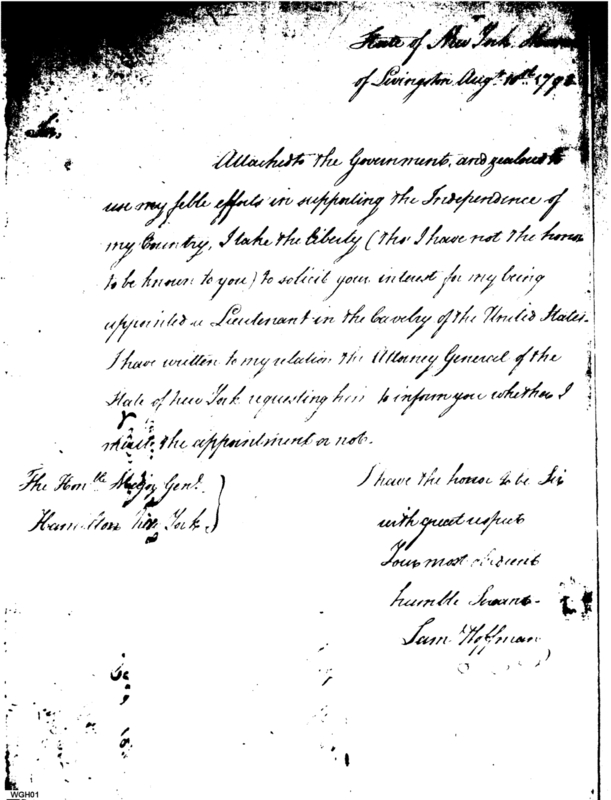 State of New York Manor
of Livingston Augt. 10th 1798
Sir,
Attached to the Government, and zealous to
use my feble efforts in supporting the Independence of
my Country, I take the Liberty (tho' I have not the honor
to be known to you) to solicit your interest for my being
appointed a Lieutenant in the Cavelry of the United States.
I have written to my relation the Attorney General of the
State of New York requesting him to inform you whether I
merit the appointment or not.
The Honble Major Genl.
Hamilton New York
I have the honor to be Sir
with great respect
Your most obedient
humble Servant
Sam Hoffman
WGH01